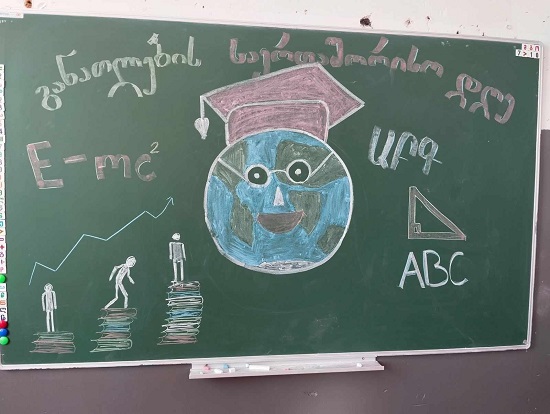 განათლების საერთაშორისო დღე
E-mc²
Աբգ
ABC